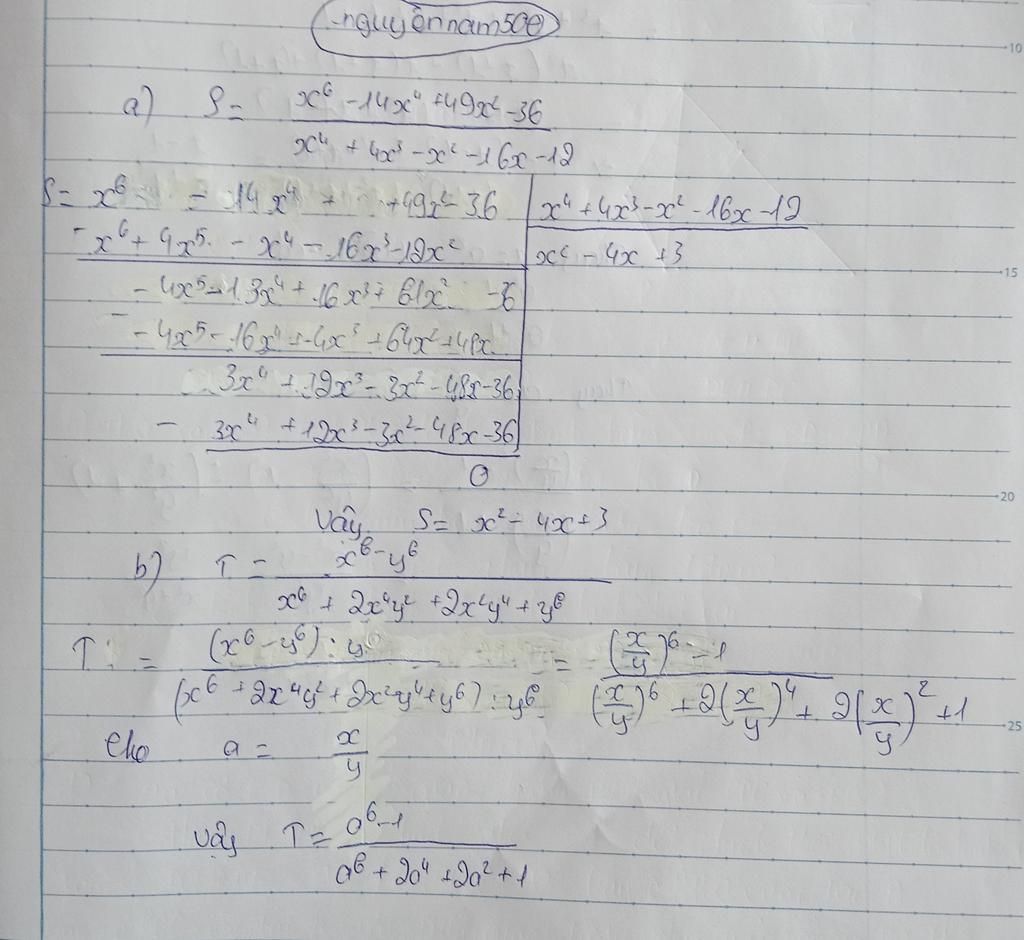 nguyễnnam500
a) S = (x⁶ - 14x⁴ + 49x² - 36) / (x⁴ + 4x³ - x² - 16x - 12)
S = x⁶ - 14x⁴ + + 49x² - 36 | x⁴ + 4x³ - x² - 16x - 12
- x⁶ + 4x⁵ - x⁴ - 16x³ - 12x² | x² - 4x + 3
- 4x⁵ - 13x⁴ + 16x³ + 61x² - 36
- - 4x⁵ - 16x⁴ + 4x³ + 64x² + 48x
3x⁴ + 12x³ - 3x² - 48x - 36
- 3x⁴ + 12x³ - 3x² - 48x - 36
0
Vậy S = x² - 4x + 3
b) T = (x⁶ - y⁶) / (x⁶ + 2x⁴y² + 2x²y⁴ + y⁶)
T = ((x⁶ - y⁶) : y⁶) / ((x⁶ + 2x⁴y² + 2x²y⁴ + y⁶) : y⁶) = ((x/y)⁶ - 1) / ((x/y)⁶ + 2(x/y)⁴ + 2(x/y)² + 1)
Cho a = x/y
Vậy T = (a⁶ - 1) / (a⁶ + 2a⁴ + 2a² + 1)
10
15
20
25